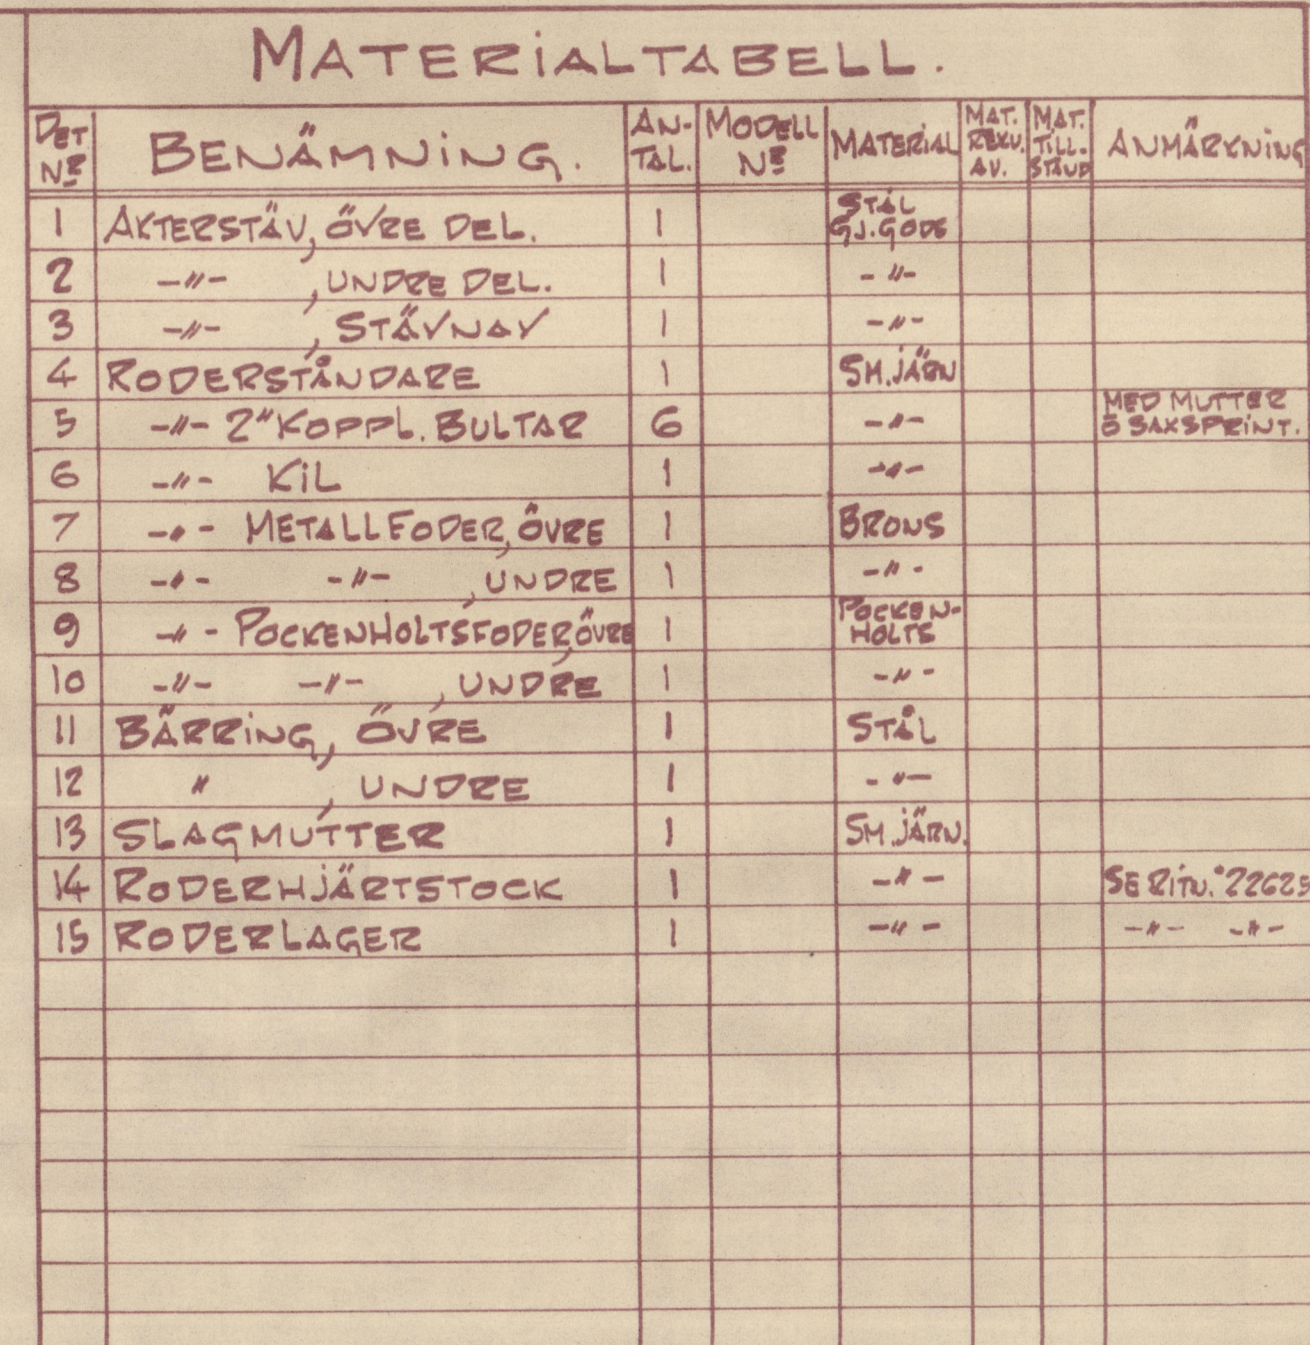 MATERIALTABELL.
DET Nº BENÄMNING. AN-TAL. MODELL Nº MATERIAL MAT. REKV. AV. MAT. TILL-STAND ANMÄRKNING
1 AKTERSTÄV, ÖVRE DEL. 1 STÅL GJ.GODS
2 -"- , UNDRE DEL. 1 -"-
3 -"- , STÄVNAV 1 -"-
4 RODERSTÅNDARE 1 SM.JÄRN
5 -"- 2" KOPPL. BULTAR 6 -"- MED MUTTER O SAXSPRINT.
6 -"- KIL 1 -"-
7 -"- METALLFODER, ÖVRE 1 BRONS
8 -"- -"- , UNDRE 1 -"-
9 -"- POCKENHOLTSFODER, ÖVRE 1 POCKEN-HOLTS
10 -"- -"- , UNDRE 1 -"-
11 BÄRRING, ÖVRE 1 STÅL
12 " , UNDRE 1 -"-
13 SLAGMUTTER 1 SM.JÄRN.
14 RODERHJÄRTSTOCK 1 -"- SE RITN.° 22625
15 RODERLAGER 1 -"- -"- -"-